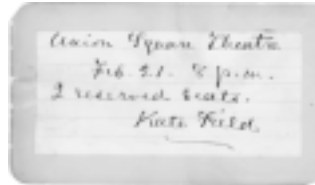 Union Square Theatre
Feb. 21. 8 p.m.
2 reserved seats.
Kate Field